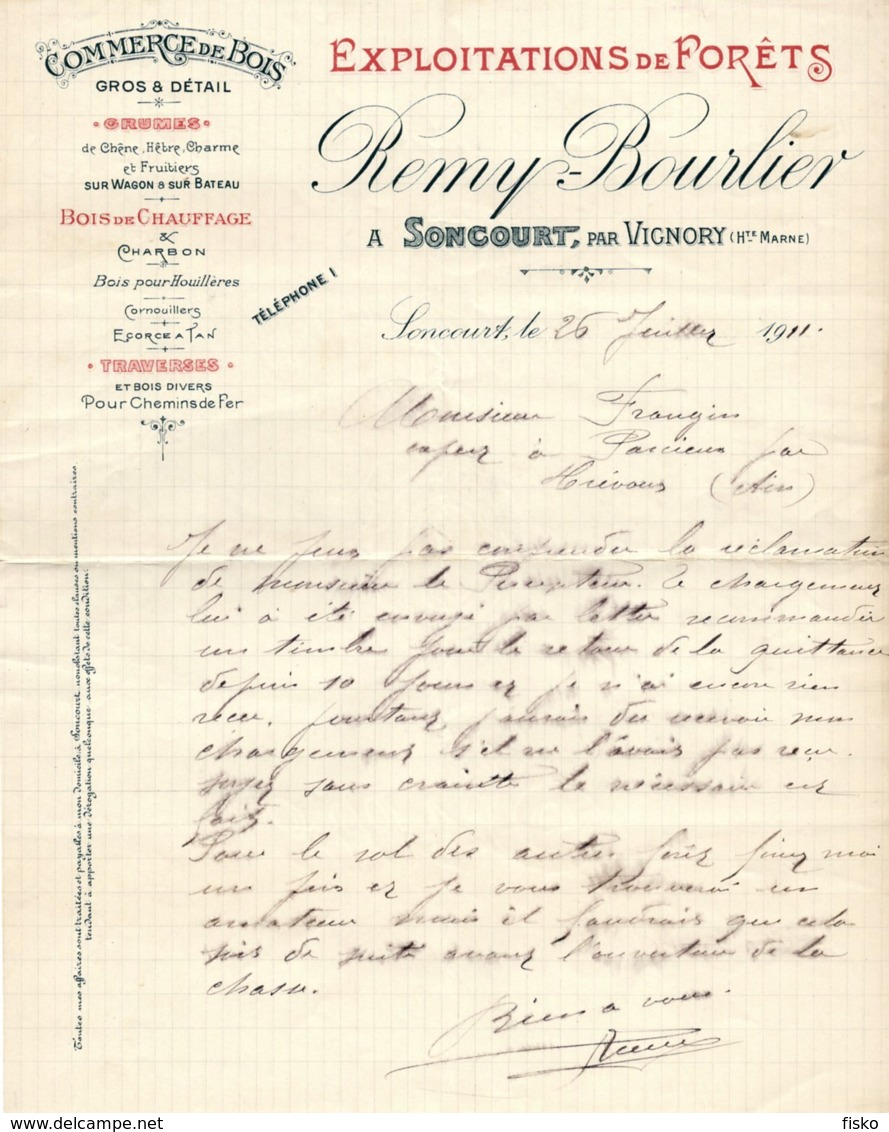 COMMERCE DE BOIS
GROS & DÉTAIL
GRUMES
de Chêne, Hêtre, Charme
et Fruitiers
SUR WAGON & SUR BATEAU
BOIS DE CHAUFFAGE
&
CHARBON
Bois pour Houillères
Cornouillers
ECORCE A TAN
TRAVERSES
ET BOIS DIVERS
Pour Chemins de Fer
EXPLOITATIONS DE FORÊTS
Remy-Bourlier
A SONCOURT, PAR VIGNORY (HTE MARNE)
TÉLÉPHONE 1
Soncourt, le 26 Juillet 1911.
Monsieur Frangin
expert à Parcieux par
Trévoux (Ain)
Je ne peux pas comprendre la réclamation
de monsieur le Percepteur. le chargement
lui à été envoyé par lettre recommander
un timbre pour le retour de la quittance
depuis 10 jours et je n'ai encore rien
recu. pourtant jaurais du recevoir mon
chargement s'il ne l'avais pas reçu.
soyez sans crainte le nécessaire est
fait.
Pour le sol des autres
un prix et je vous trouverai un
amateur mais il faudrais que cela
de suite avant l'ouverture de la
chasse.
Bien a vous.
Toutes mes affaires sont traitées et payables à mon domicile à Soncourt nonobstant toutes clauses ou mentions contraires
tendant à apporter une dérogation quelconque aux effets de cette condition.
www.delcampe.net
fisko